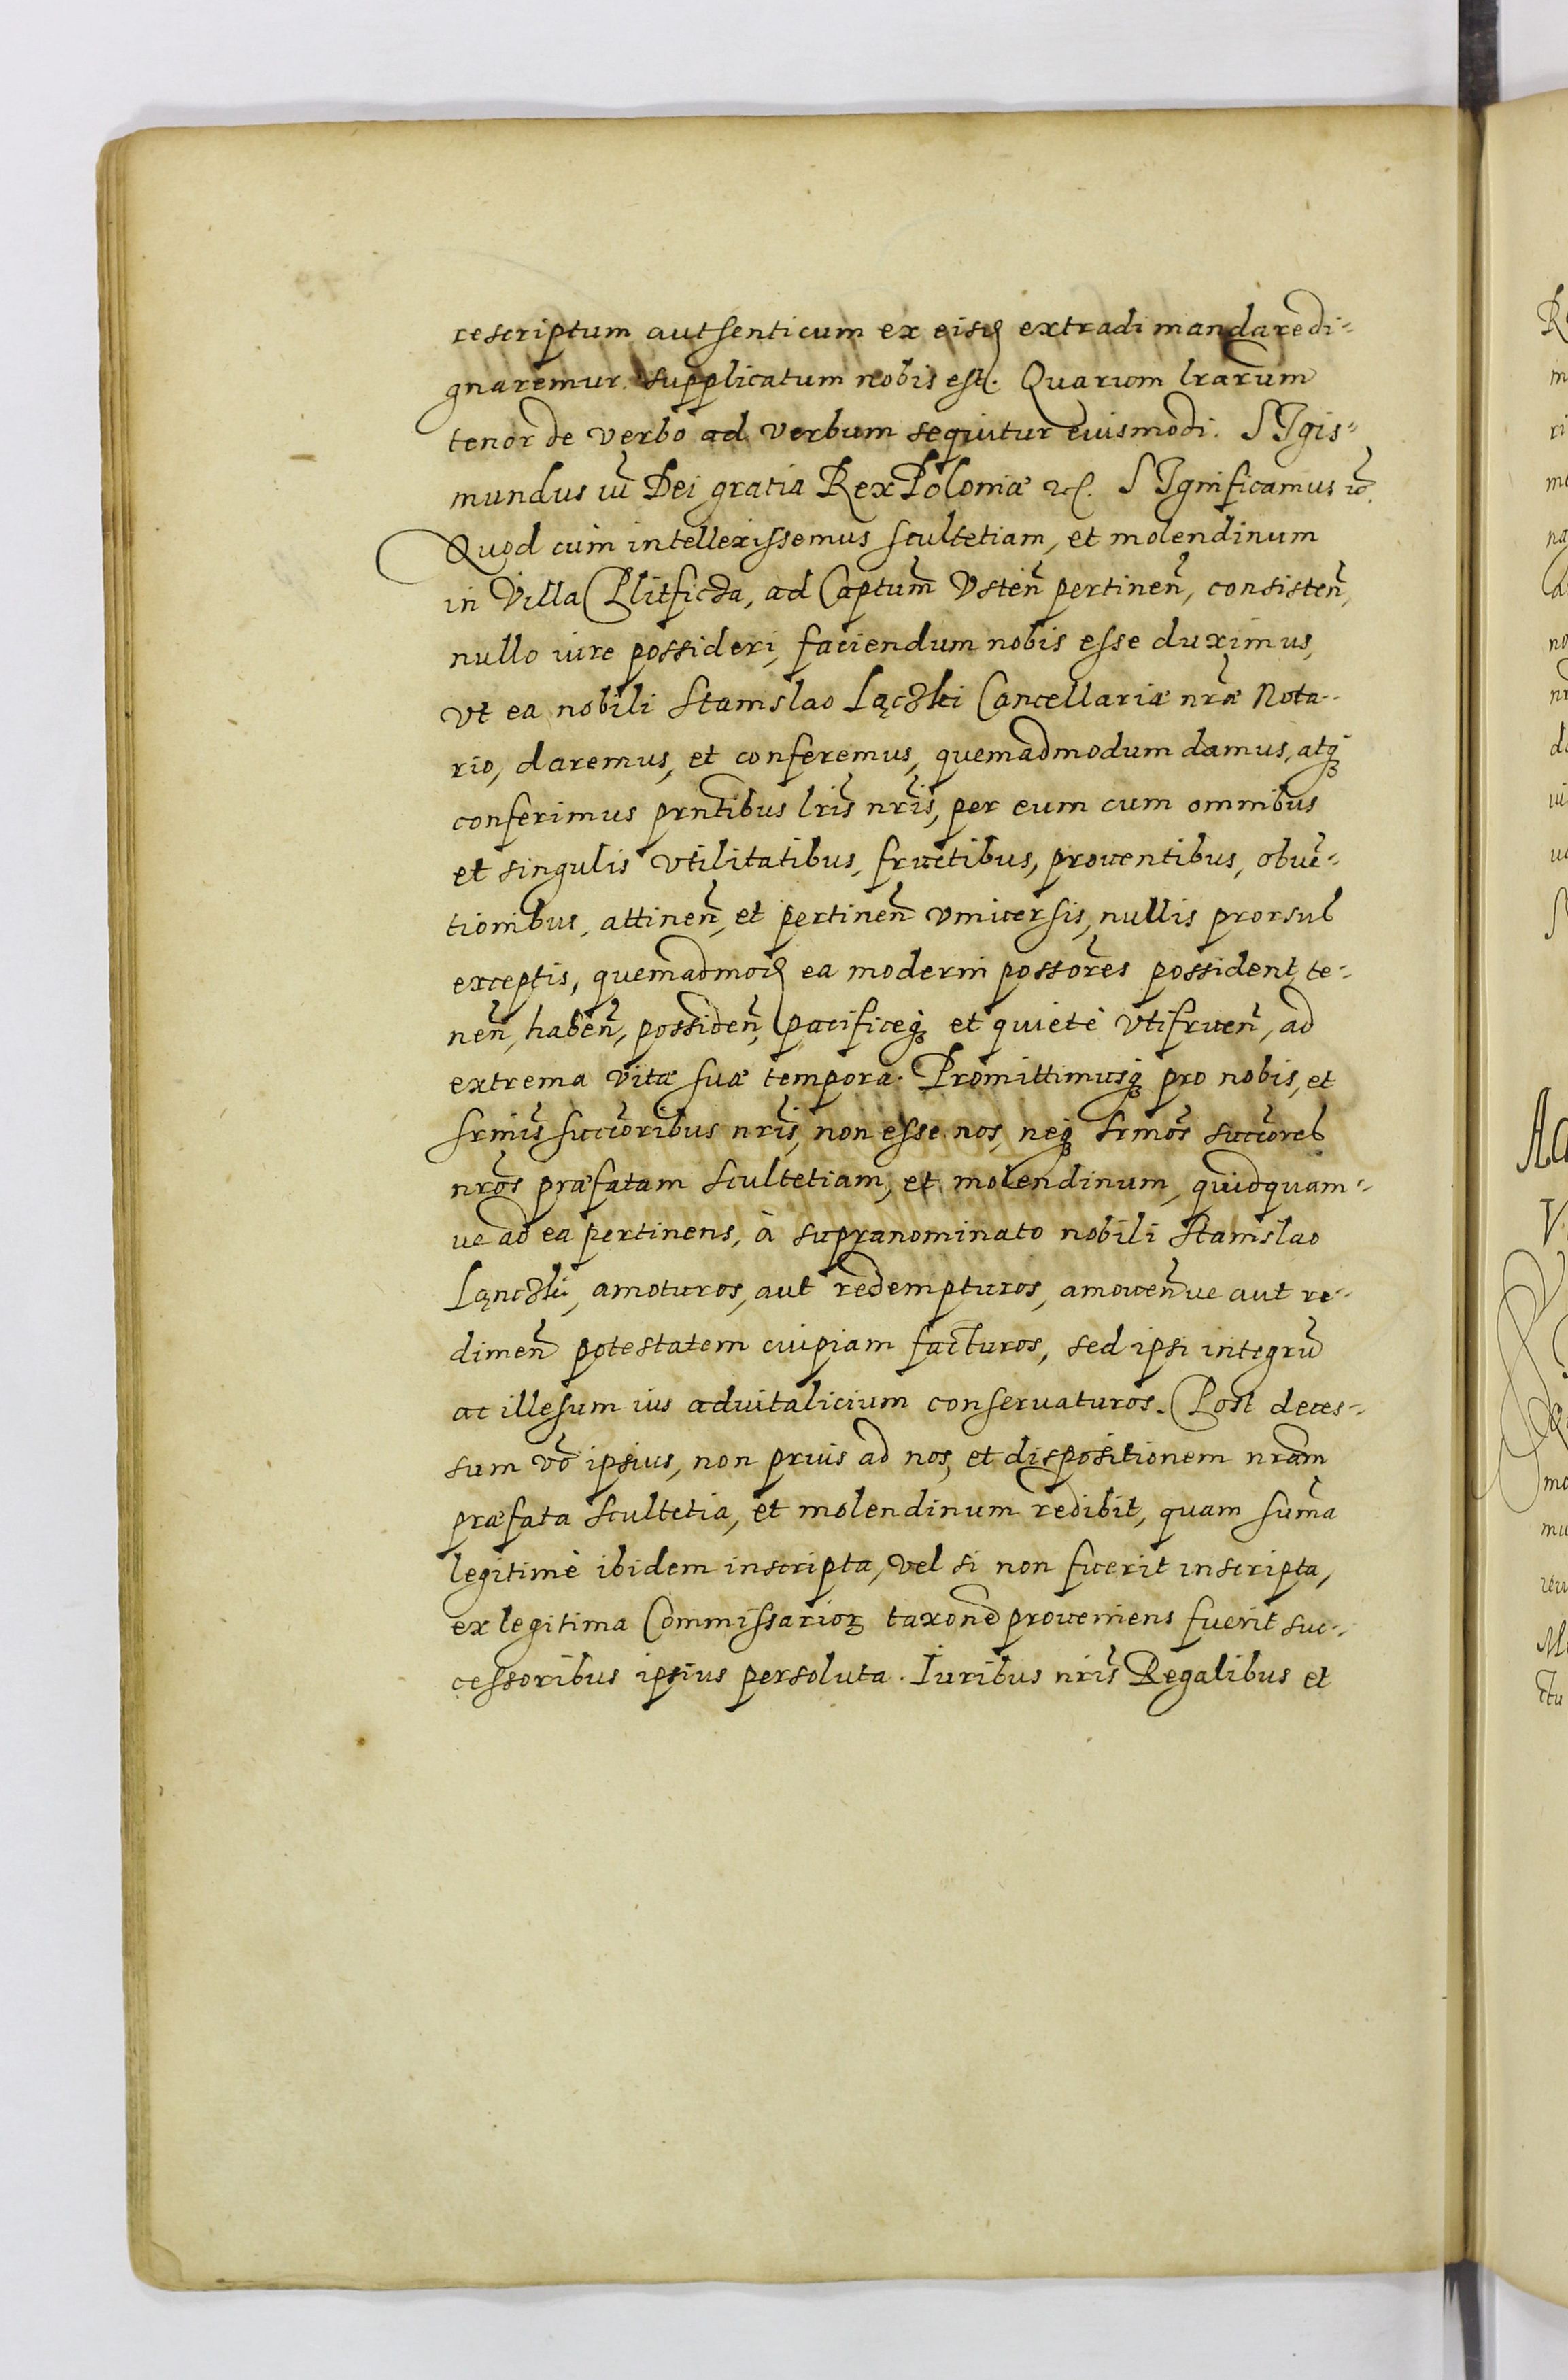 rescriptum authenticum ex eisd extradi mandare di-
gnaremur supplicatum nobis est. Quarum lrarum
tenor de verbo ad verbum sequitur eiusmodi. SIgis-
mundus iii Dei gratia Rex Poloniæ etc. SIgnificamus
Quod cum intellexissemus scultetiam, et molendinum
in Villa Plitficza, ad Captum Vsten̄ pertinen̄, consisten̄,
nullo iure possideri, faciendum nobis esse duximus,
vt ea nobili Stanislao Łączki Cancellariæ nr̄æ Nota-
rio, daremus, et conferemus, quemadmodum damus, atq́
conferimus prn̄tibus lrīs nrīs, per eum cum omnibus
et singulis vtilitatibus, fructibus, prouentibus, obue̅-
tionibus, attinen̄, et pertinen̄ vniuersis, nullis prorsus
exceptis, quemadmod ea moderni possōres possident, te-
nen̄, haben̄, possiden̄, pacificeq́ et quietè vtifruen̄, ad
extrema vitæ suæ tempora. Promittimusq́ pro nobis, et
Srmīs succōribus nrīs, non esse nos, neq́ Srmōs succōres
nrōs præfatam scultetiam, et molendinum, quidquam-
ue ad ea pertinens, à supranominato nobili Stanislao
Łąnczki, amoturos, aut redempturos, amouen̄ue aut re-
dimen̄ potestatem cuipiam facturos, sed ipsi integrū
ac illesum ius aduitalicium conseruaturos. Post deces-
sum vō ipsius, non prius ad nos, et dispositionem nrām
præfata scultetia, et molendinum redibit, quam sum̄a
legitimè ibidem inscripta, vel si non fuerit inscripta,
ex legitima Commissarioꝝ taxōne proueniens fuerit suc-
cessoribus ipsius persoluta. Iuribus nrīs Regalibus et